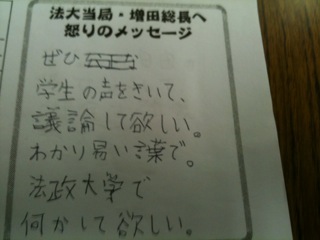 法大当局・増田総長へ
怒りのメッセージ
ぜひ
学生の声をきいて、
議論して欲しい。
わかり易い言葉で。
法政大学で
何かして欲しい。